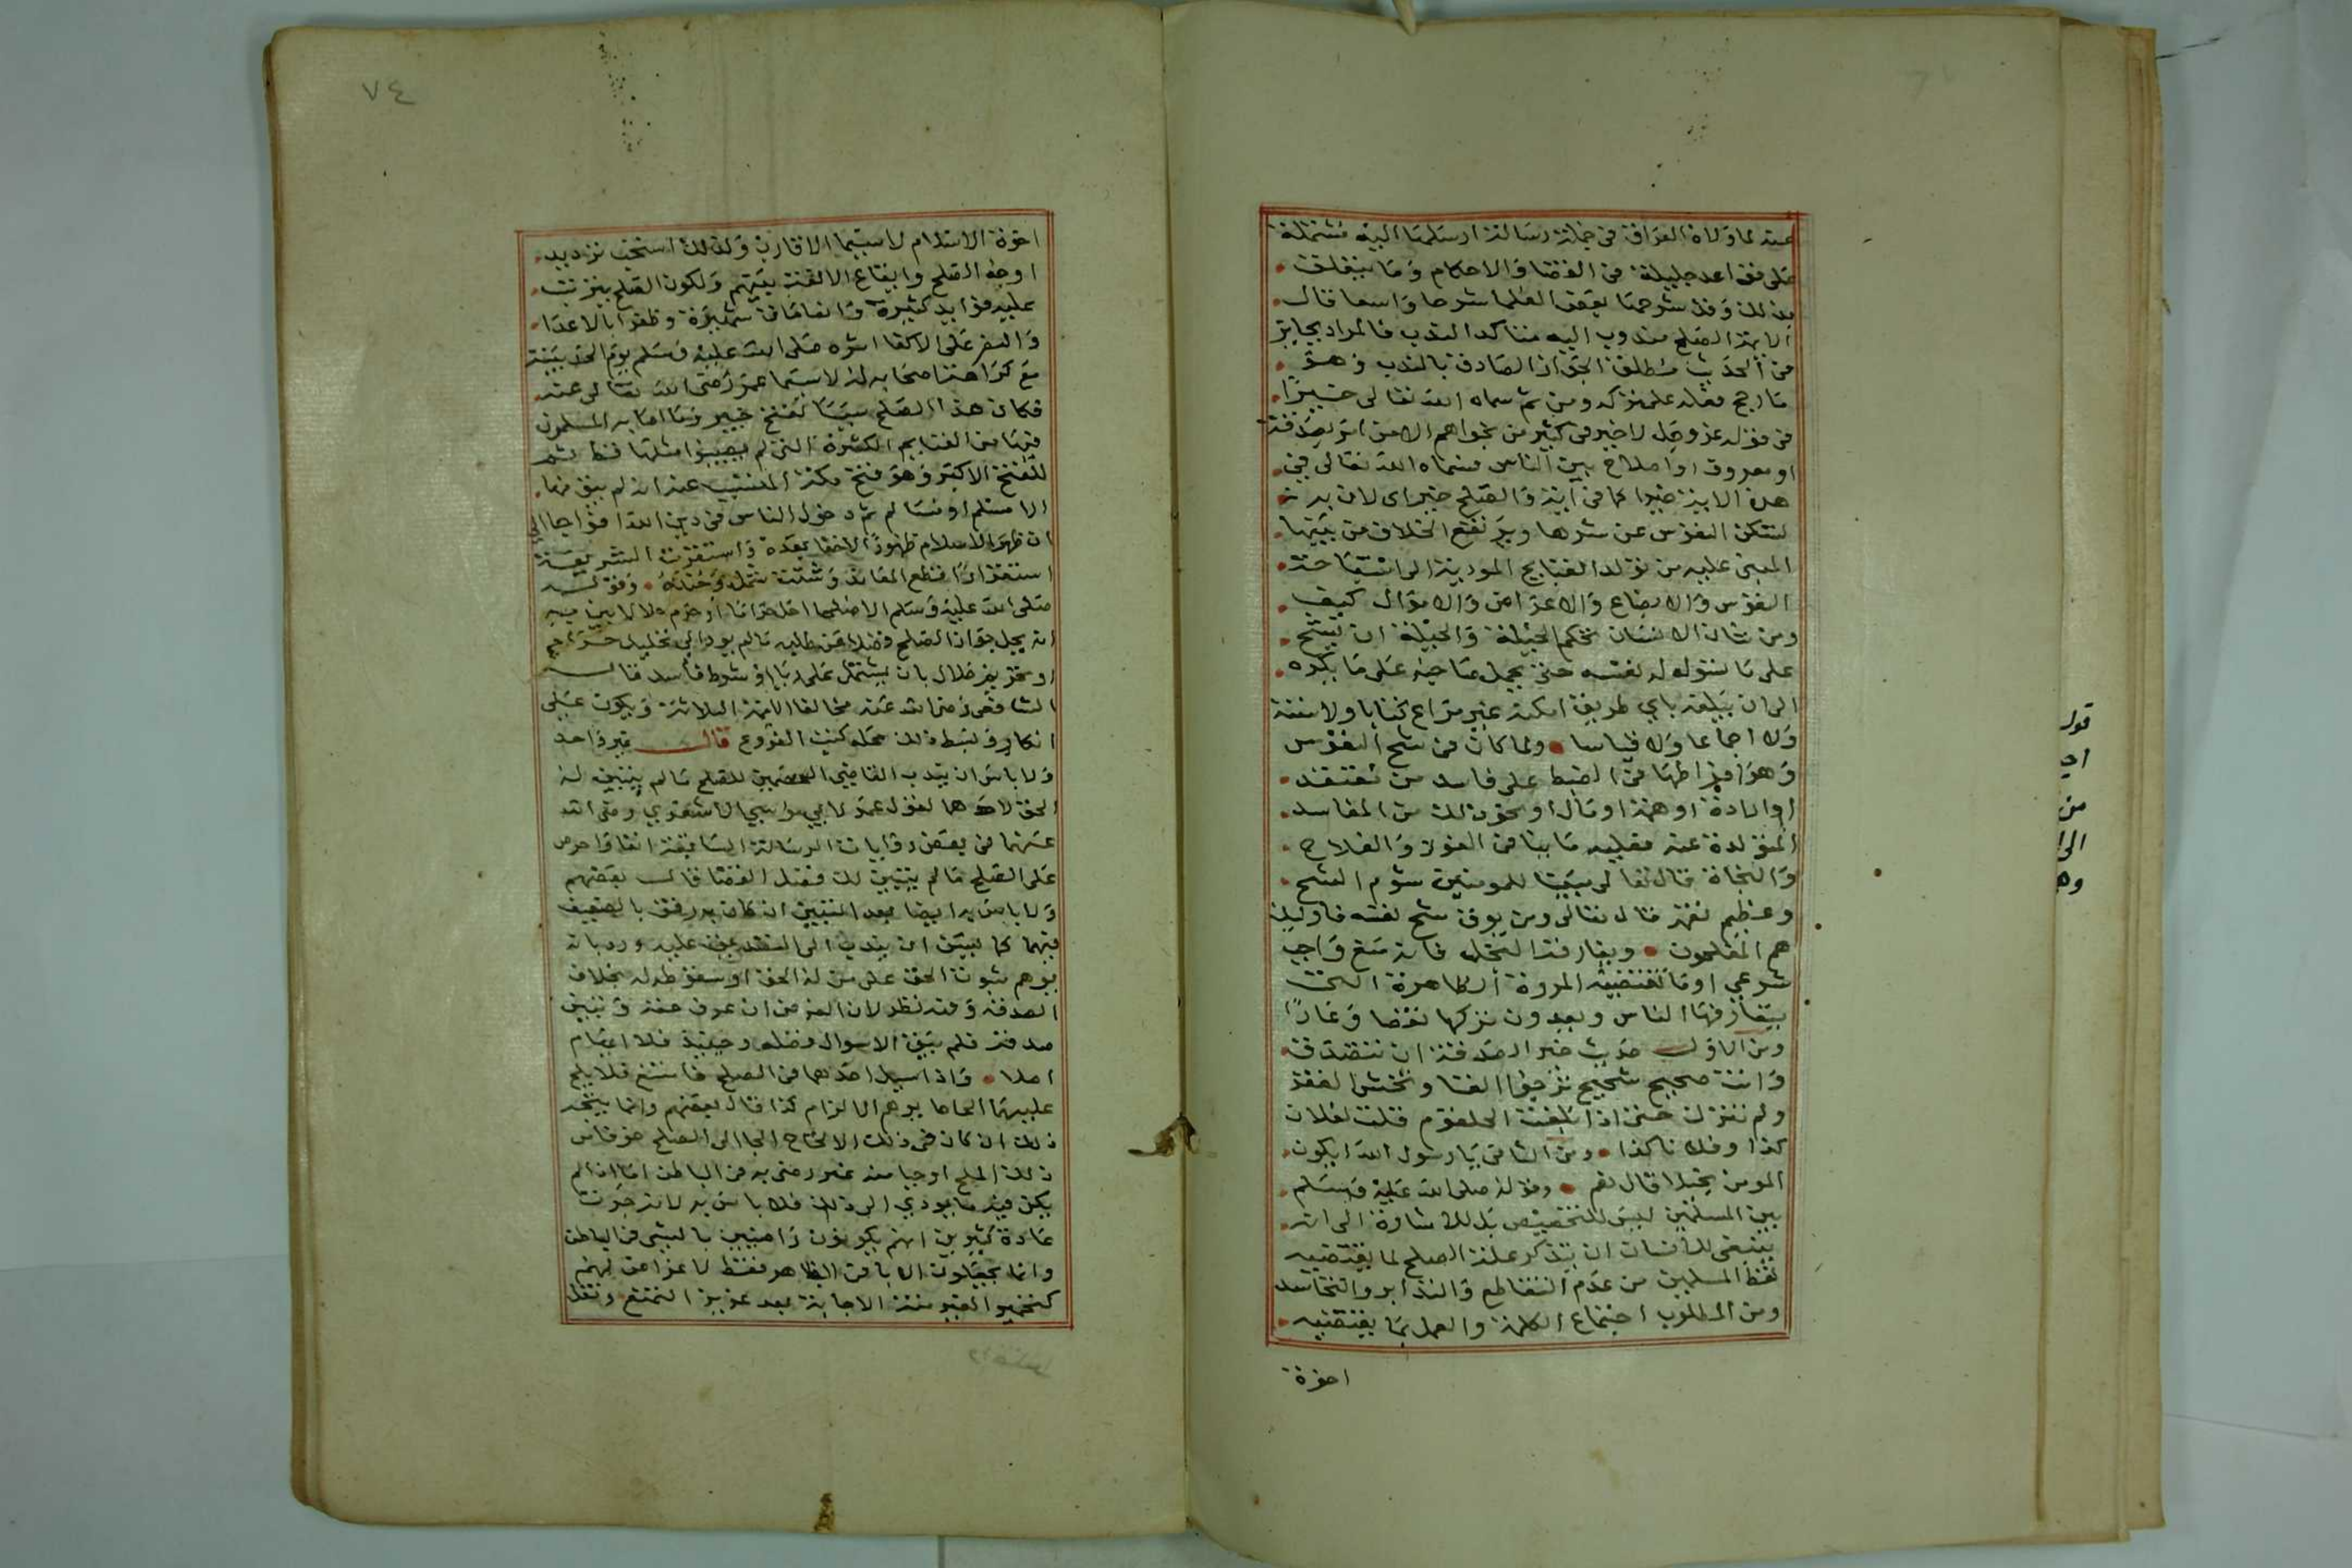 عنه لما ولاه العراق في جملة رسالة ارسلها اليه مشتملة
على قواعد جليلة من القضا والاحكام وما يتعلق
بذلك وقد شرحها بعض العلما شرحا واسعا قال
الايمة الصلح مندوب اليه متاكد الندب فالمراد بجايز
في الحديث مطلق الجواز الصادق بالندب وهو
ما رجح فعله على تركه ومن ثم سماه الله تعالى خيرا
في قوله عز وجل لا خير في كثير من نجواهم الا من امر بصدقة
او معروف او اصلاح بين الناس فسماه الله تعالى في
هذه الاية خيرا كما في اية والصلح خير اي لان به
تسكن النفوس عن شرها ويرتفع الخلاف من بينها
المبني عليه من تولد القبايح المودية الى استباحة
النفوس والابضاع والاعراض والاموال كيف
ومن شان الانسان بحكم الجبلة والحيلة ان يشح
على ما سولوله نفسه حتى يحمل صاحبه على ما يكره
الى ان يبلغه باي طريق امكنه غير مراع كتابا ولا سنة
ولا اجماعا ولا قياسا ولما كان في شح النفوس
وهو افراطها في الضبط على فاسد من معتقد
او ارادة او همة او مال او نحو ذلك من المفاسد
المتولدة عنه فغلبه ما ينافي الفوز والفلاح
والنجاة قال تعالى مبينا للمومنين شوم الشح
وعظيم نفعه قال تعالى ومن يوق شح نفسه فاوليك
هم المفلحون ويفارقه البخل فانه منع واجب
شرعي او ما تقتضيه المروة الظاهرة التي
يتعارفها الناس ويعدون تركها نقصا وعارا
ومن الاول حديث خير الصدقة ان تتصدق
وانت صحيح شحيح ترجوا الغنا وتخشى الفقر
ولم تنزل حتى اذا بلغت الحلقوم قلت لفلان
كذا وفلانا كذا ومن الثاني يا رسول الله ايكون
المومن بخيلا قال نعم وقوله صلى الله عليه وسلم
بين المسلمين ليس للتخصيص بل للاشارة الى انه
ينبغي للانسان ان يتذكر علة الصلح لما يقتضيه
لفظ المسلمين من عدم التقاطع والتدابر والتحاسد
ومن المطلوب اجتماع الكلمة والعمل بما يقتضيه
اخوة
قول
من
الى
٧٤
اخوة الاسلام لا سيما الاقارب ولذلك استحب ترديد
اوجه الصلح وايقاع الالفة بينهم ولكون الصلح يترتب
عليه فوايد كثيرة واتفاقات شهيرة وظفرا بالاعدا
والنصر على الاكفا اثره صلى الله عليه وسلم يوم الحديبية
مع كراهة اصحابه له لا سيما عمر رضي الله تعالى عنه
فكان هذا الصلح سببا لفتح خيبر وما اصابه المسلمون
فيها من الغنايم الكثيرة التي لم يصيبوا مثلها قط ثم
للفتح الاكبر وهو فتح مكة المتسبب عنه انه لم يبق منها
الا مسلم او مسالم ثم دخول الناس في دين الله افواجا الى
ان ظهر الاسلام ظهورا لا خفا بعده واستقرت الشريعة
استقرارا قطع المعاند وشتت شمله وخذله وقوله
صلى الله عليه وسلم الا صلحا احل حراما او حرم حلالا يبين به
ان محل جواز الصلح فضلا عن طلبه ما لم يود الى تحليل حرام
او تحريم حلال بان يشتمل على ربا او شرط فاسد قال
الشافعي رضي الله عنه مخالفا الايمة الثلاثة ويكون على
انكار وبسط ذلك محله كتب الفروع قال غير واحد
ولا باس ان يندب القاضي الخصمين للصلح ما لم يتبين له
الحق لاحدهما لقول عمر لابي موسى الاشعري رضي الله
عنهما في بعض روايات الرسالة السابقة انفا واحرص
على الصلح ما لم يتبين لك فصل القضا قال بعضهم
ولا باس به ايضا بعد التبيين ان كان به رفق بالضعيف
منهما كما يسن ان يندب الى الصدقة عليه ورد بانه
يوهم ثبوت الحق على من له الحق او سقوطه له بخلاف
الصدقة وفيه نظر لان الفرض ان عرف حقه وتبين
صدقه فلم يبق الا سوال فضله وحينيذ فلا ايهام
اصلا واذا سيل احدهما في الصلح فامتنع فلا يلح
عليهما الحاحا يوهم الالزام كذا قال بعضهم وانما يتجه
ذلك ان كان في ذلك الالحاح الجا الى الصلح خوفا من
ذلك الملح او حيا منه غير رضى به في الباطن اما اذا لم
يكن فيه ما يودي الى ذلك فلا باس به لانه جرت
عادة كثيرين انهم يكونون راضيين بالشي في الباطن
وانما يجعلون الابا في الظاهر فقط لاغراض لهم
كتخميرالغير منة الاجابة بعد عزيز التمنع ونقل